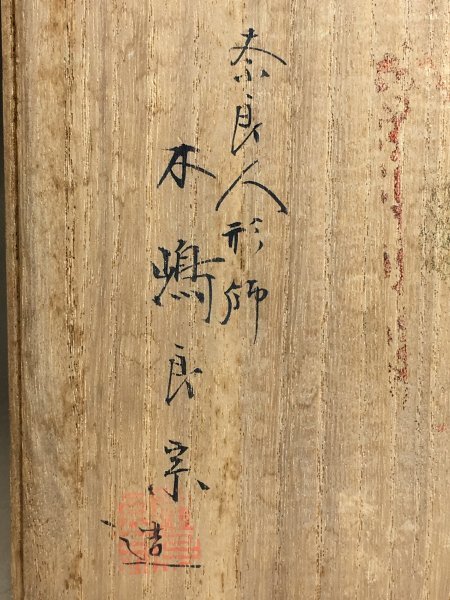 奈良人形師
木嶋良宗
造